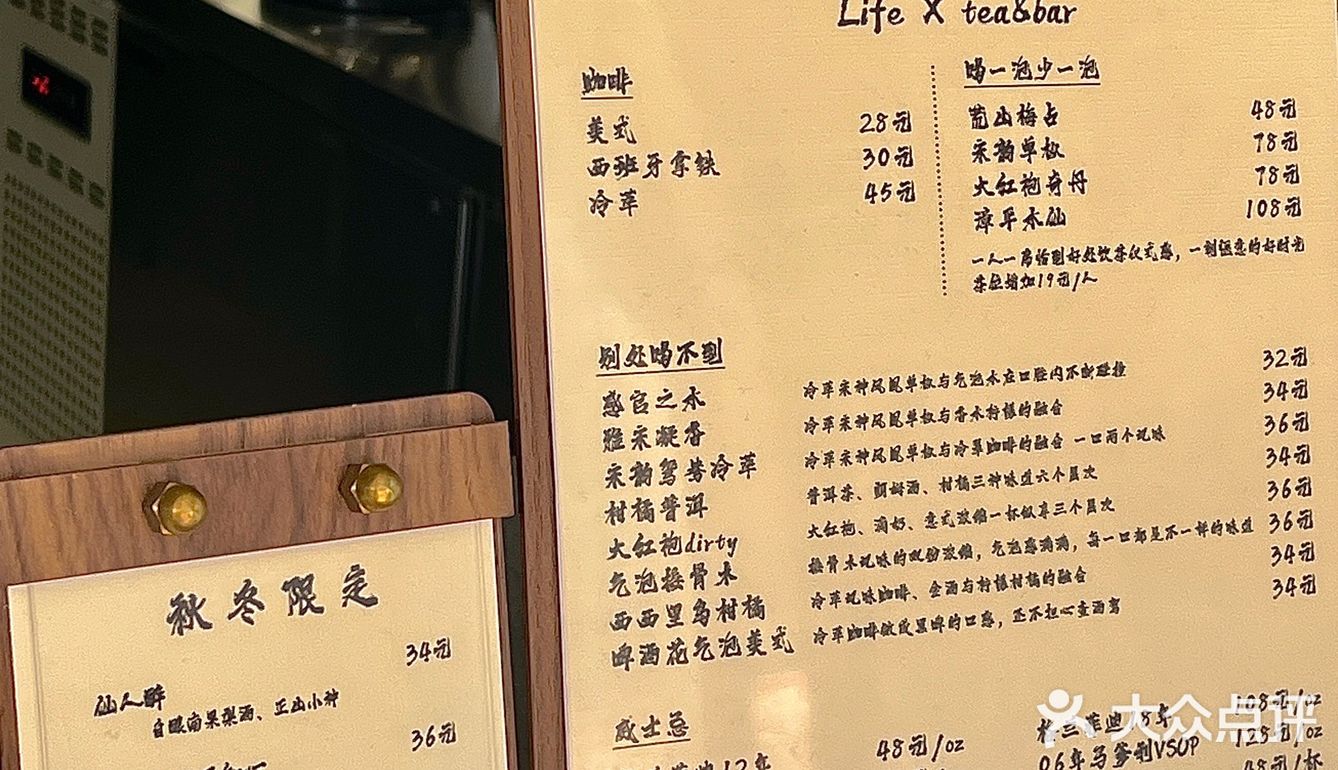 Life X tea&bar
咖啡
美式 28元
西班牙拿铁 30元
冷萃 45元
喝一泡少一泡
荒山梅占 48元
宋韵单枞 78元
大红袍奇丹 78元
漳平水仙 108元
一人一席恰到好处饮茶仪式感，一刻惬意的好时光
茶位增加19元/人
别处喝不到
感官之水 冷萃宋种凤凰单枞与气泡水在口腔内不断碰撞 32元
雅宋凝香 冷萃宋种凤凰单枞与香水柠檬的融合 34元
宋韵鸳鸯冷萃 冷萃宋种凤凰单枞与冷萃咖啡的融合 一口两个风味 36元
柑橘普洱 普洱茶、朗姆酒、柑橘三种味道六个层次 34元
大红袍dirty 大红袍、滴奶、意式浓缩一杯纵享三个层次 36元
气泡接骨木 接骨木风味的双份浓缩，气泡感满满，每一口都是不一样的味道 36元
西西里岛柑橘 冷萃风味咖啡、金酒与柠檬柑橘的融合 34元
啤酒花气泡美式 冷萃咖啡做成黑啤的口感，还不担心查酒驾 34元
威士忌
12年 48元/oz
格兰菲迪18年 108元/oz
06年马爹利VSOP 128元/oz
48元/杯
秋冬限定
34元
仙人醉
自酿南果梨酒、正山小种
36元
大众点评